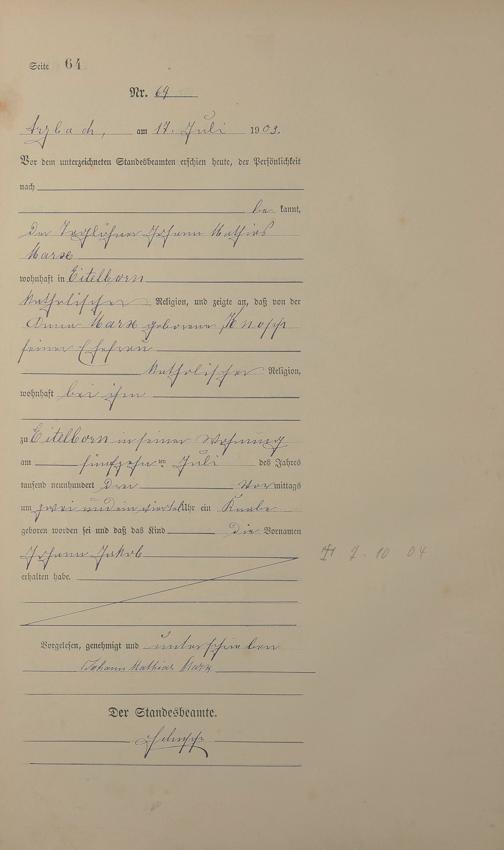 Seite 64
Nr. 69
Arzbach, am 17. Juli 1903.
Vor dem unterzeichneten Standesbeamten erschien heute, der Persönlichkeit
nach
be kannt,
der Taglöhner Johann Mathias
Marx
wohnhaft in Eitelborn
katholischer Religion, und zeigte an, daß von der
Anna Marx geborene Knopp
seiner Ehefrau
katholischer Religion,
wohnhaft bei ihm
zu Eitelborn in seiner Wohnung
am fünfzehnten Juli des Jahres
tausend neunhundert drei Vormittags
um zwei und ein viertel Uhr ein Knabe
geboren worden sei und daß das Kind die Vornamen
Johann Jakob
erhalten habe.
† 7. 10 04
Vorgelesen, genehmigt und unterschrieben
Johann Mathias Marx
Der Standesbeamte.